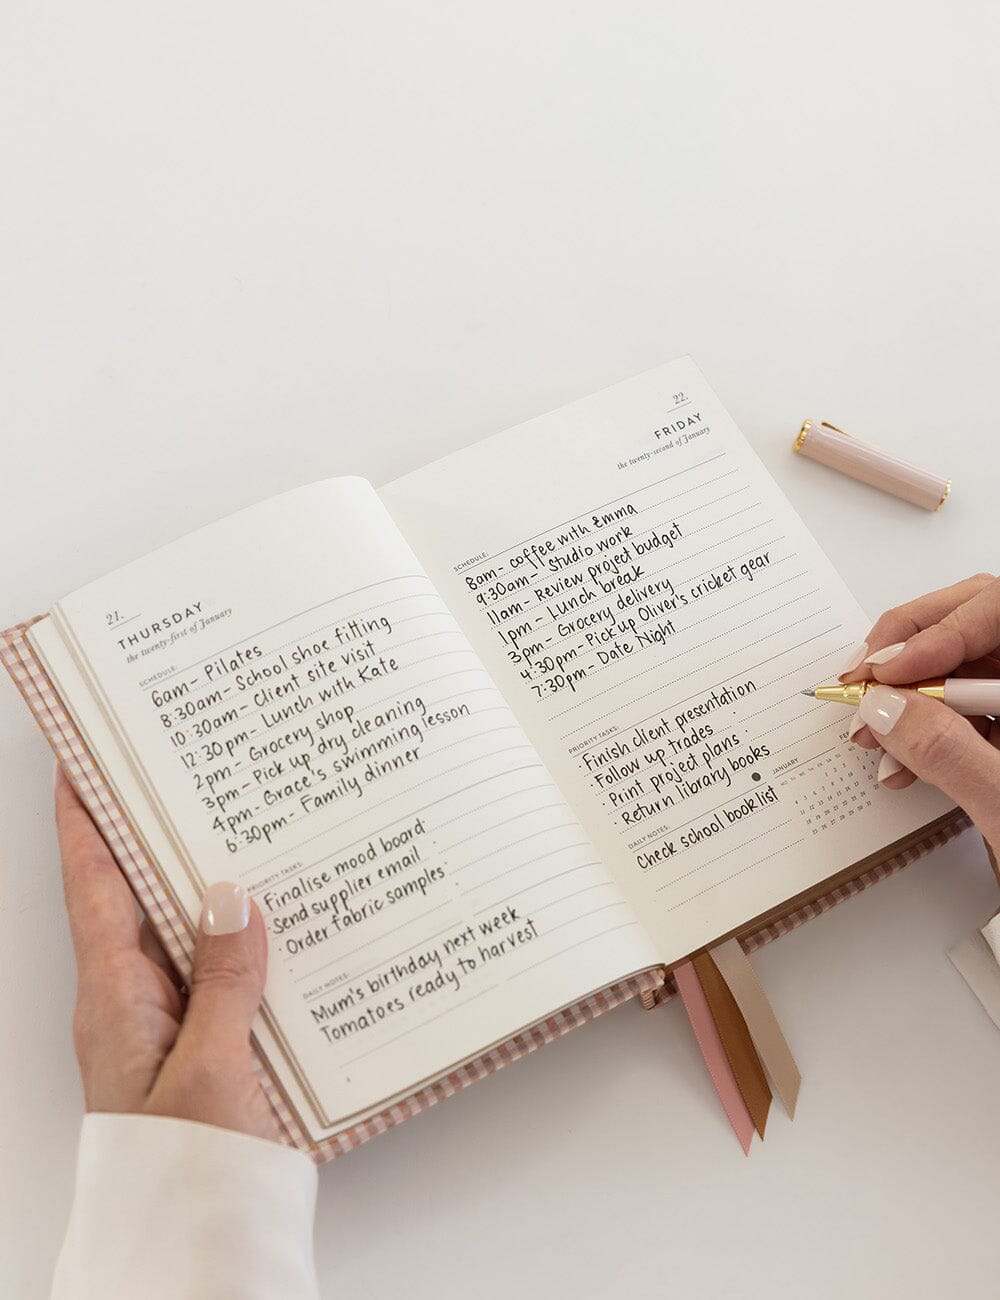 21.
THURSDAY
the twenty-first of January
SCHEDULE:
6am- Pilates
8:30am- School shoe fitting
10:30am- Client site visit
12:30pm- Lunch with Kate
2pm- Grocery shop
3pm- Pick up dry cleaning
4pm- Grace's swimming lesson
6:30pm- Family dinner
PRIORITY TASKS:
Finalise mood board
Send supplier email
Order fabric samples
DAILY NOTES:
Mum's birthday next week
Tomatoes ready to harvest
22.
FRIDAY
the twenty-second of January
SCHEDULE:
8am- coffee with Emma
9:30am- Studio work
11am- Review project budget
1pm- Lunch break
3pm- Grocery delivery
4:30pm- Pick up Oliver's cricket gear
7:30pm- Date Night
PRIORITY TASKS:
Finish client presentation
Follow up Trades
Print project plans
Return library books
DAILY NOTES:
Check school book list
JANUARY